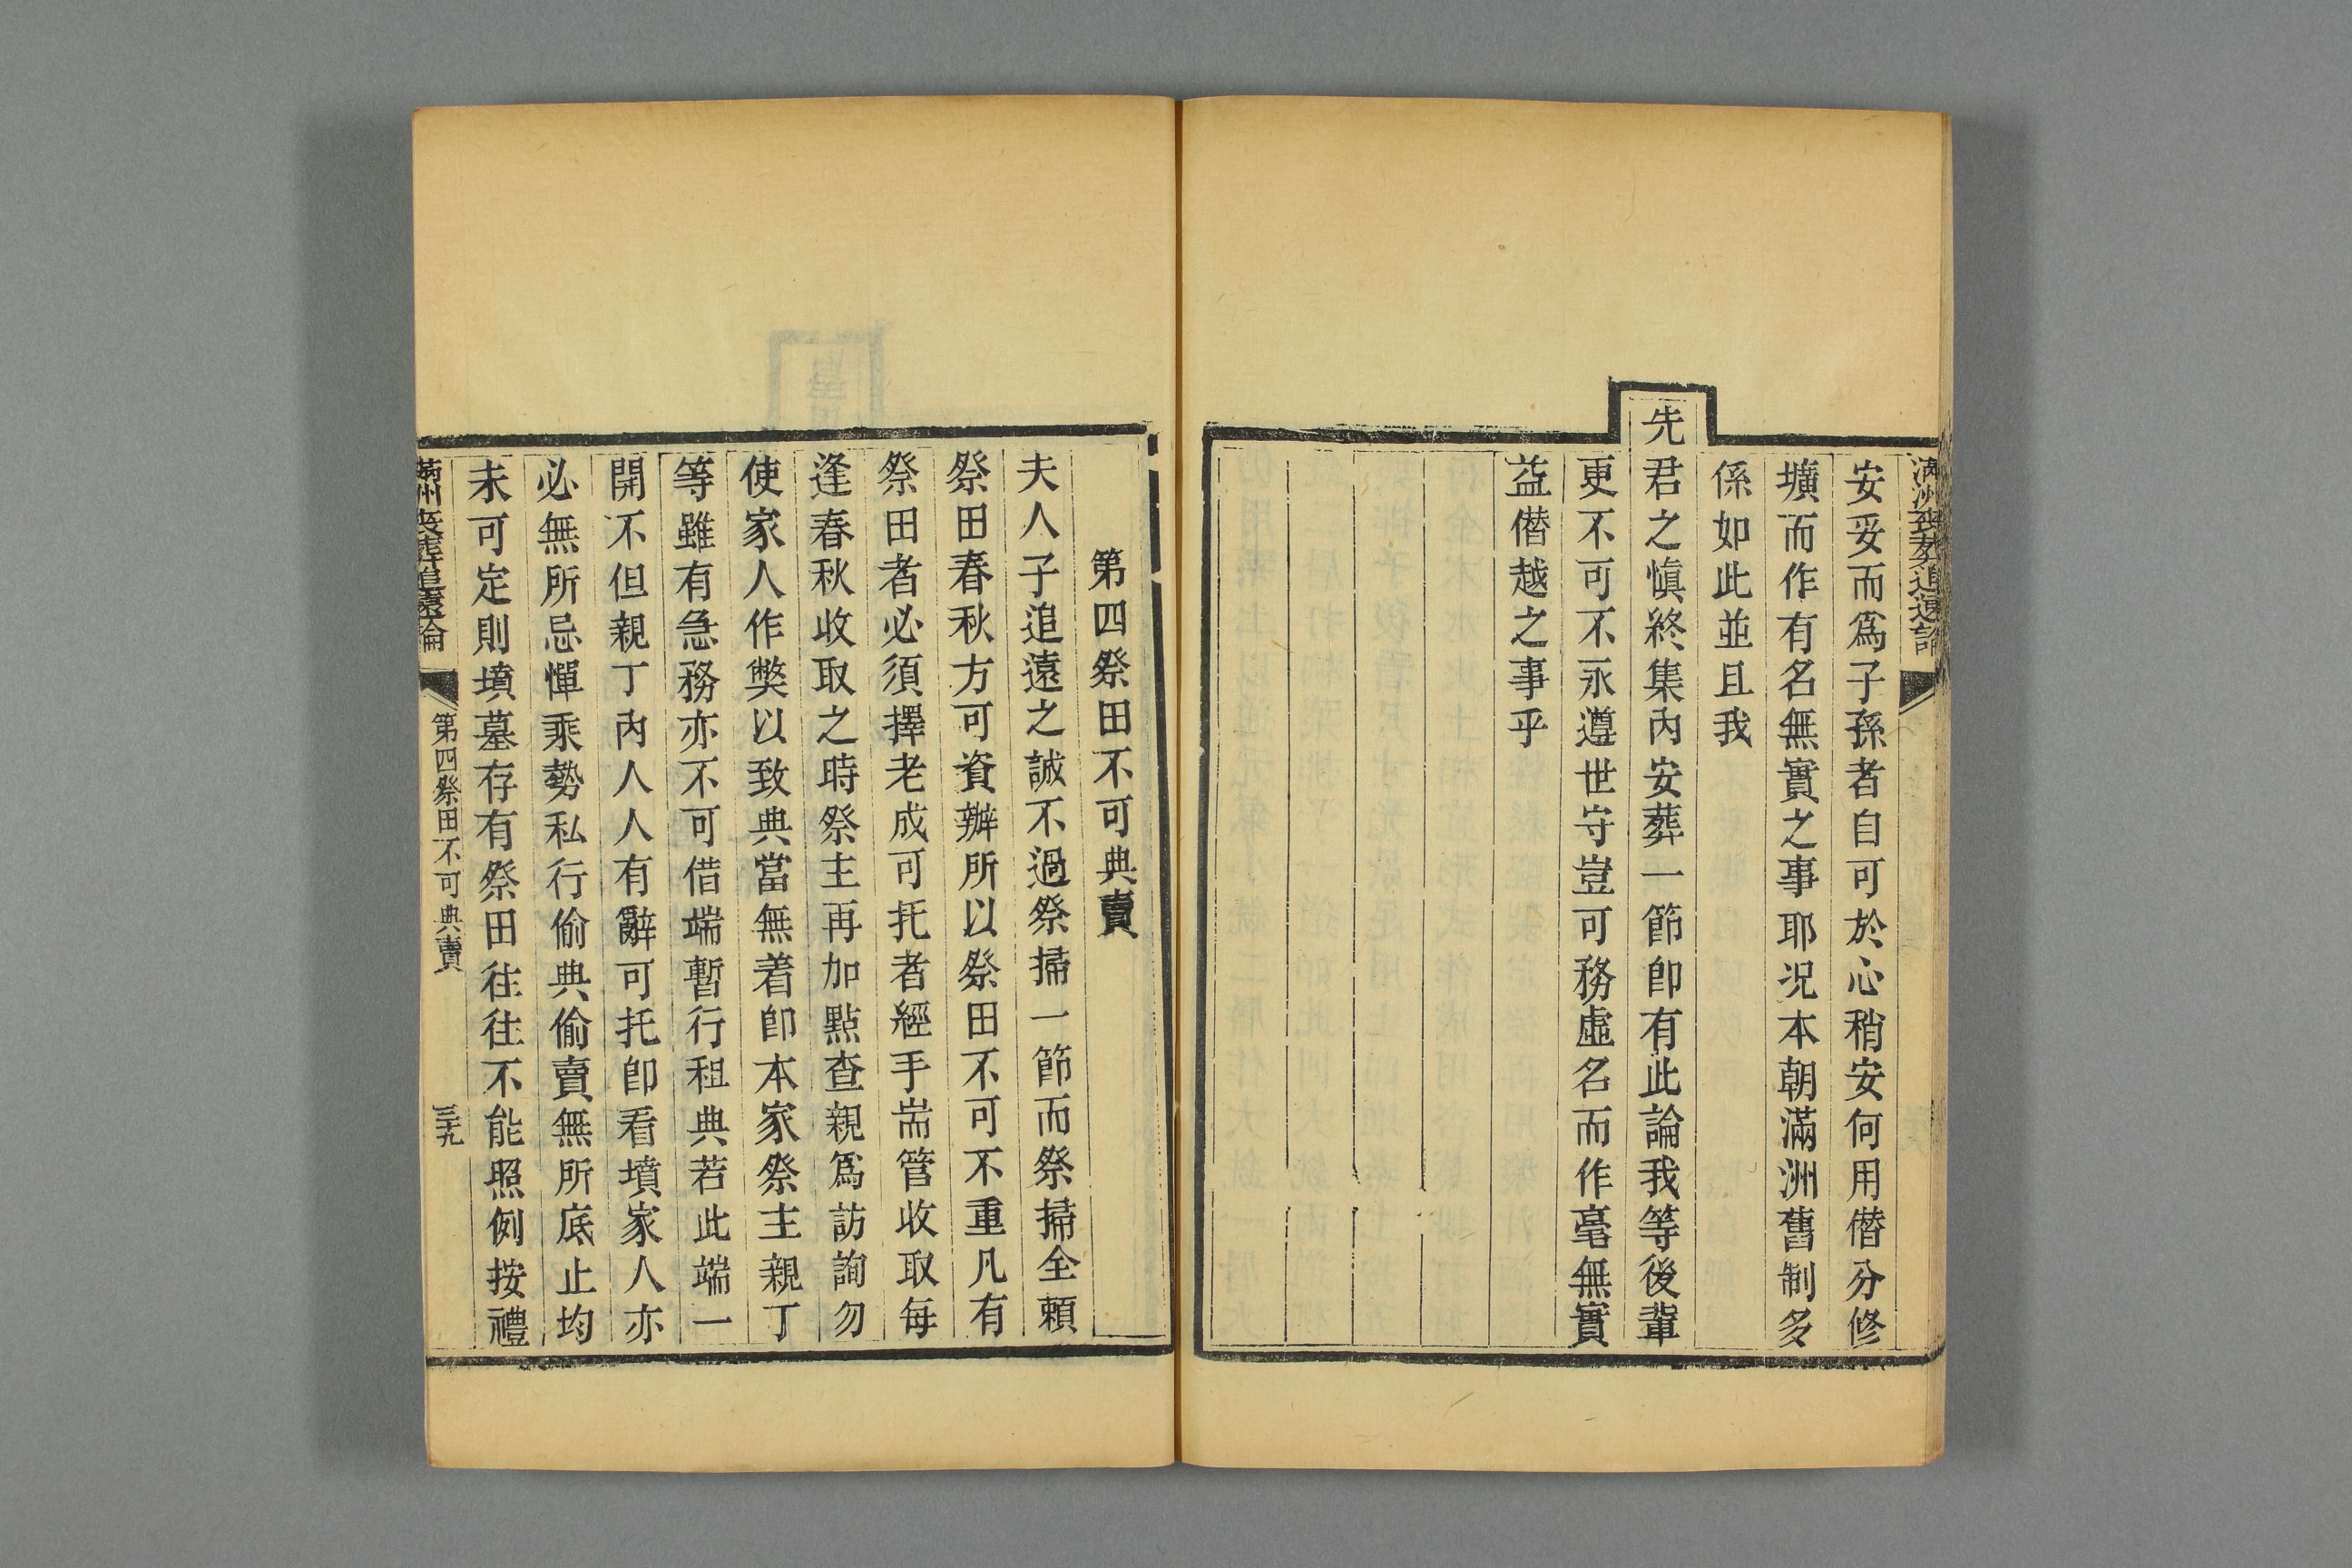 滿洲喪葬追遠論
安妥而爲子孫者自可於心稍安何用僭分修
壙而作有名無實之事耶况本朝滿洲舊制多
係如此並且我
先君之愼終集內安葬一節卽有此論我等後輩
更不可不永遵世守豈可務虛名而作毫無實
益僭越之事乎
第四祭田不可典賣
夫人子追遠之誠不過祭掃一節而祭掃全賴
祭田春秋方可資辦所以祭田不可不重凡有
祭田者必須擇老成可托者經手耑管收取每
逢春秋收取之時祭主再加點查親爲訪詢勿
使家人作獘以致典當無着卽本家祭主親丁
等雖有急務亦不可借端暫行租典若此端一
開不但親丁內人人有辭可托卽看墳家人亦
必無所忌憚乘勢私行偷典偷賣無所底止均
未可定則墳墓存有祭田往往不能照例按禮
滿洲喪葬追遠論 第四祭田不可典賣 三十九